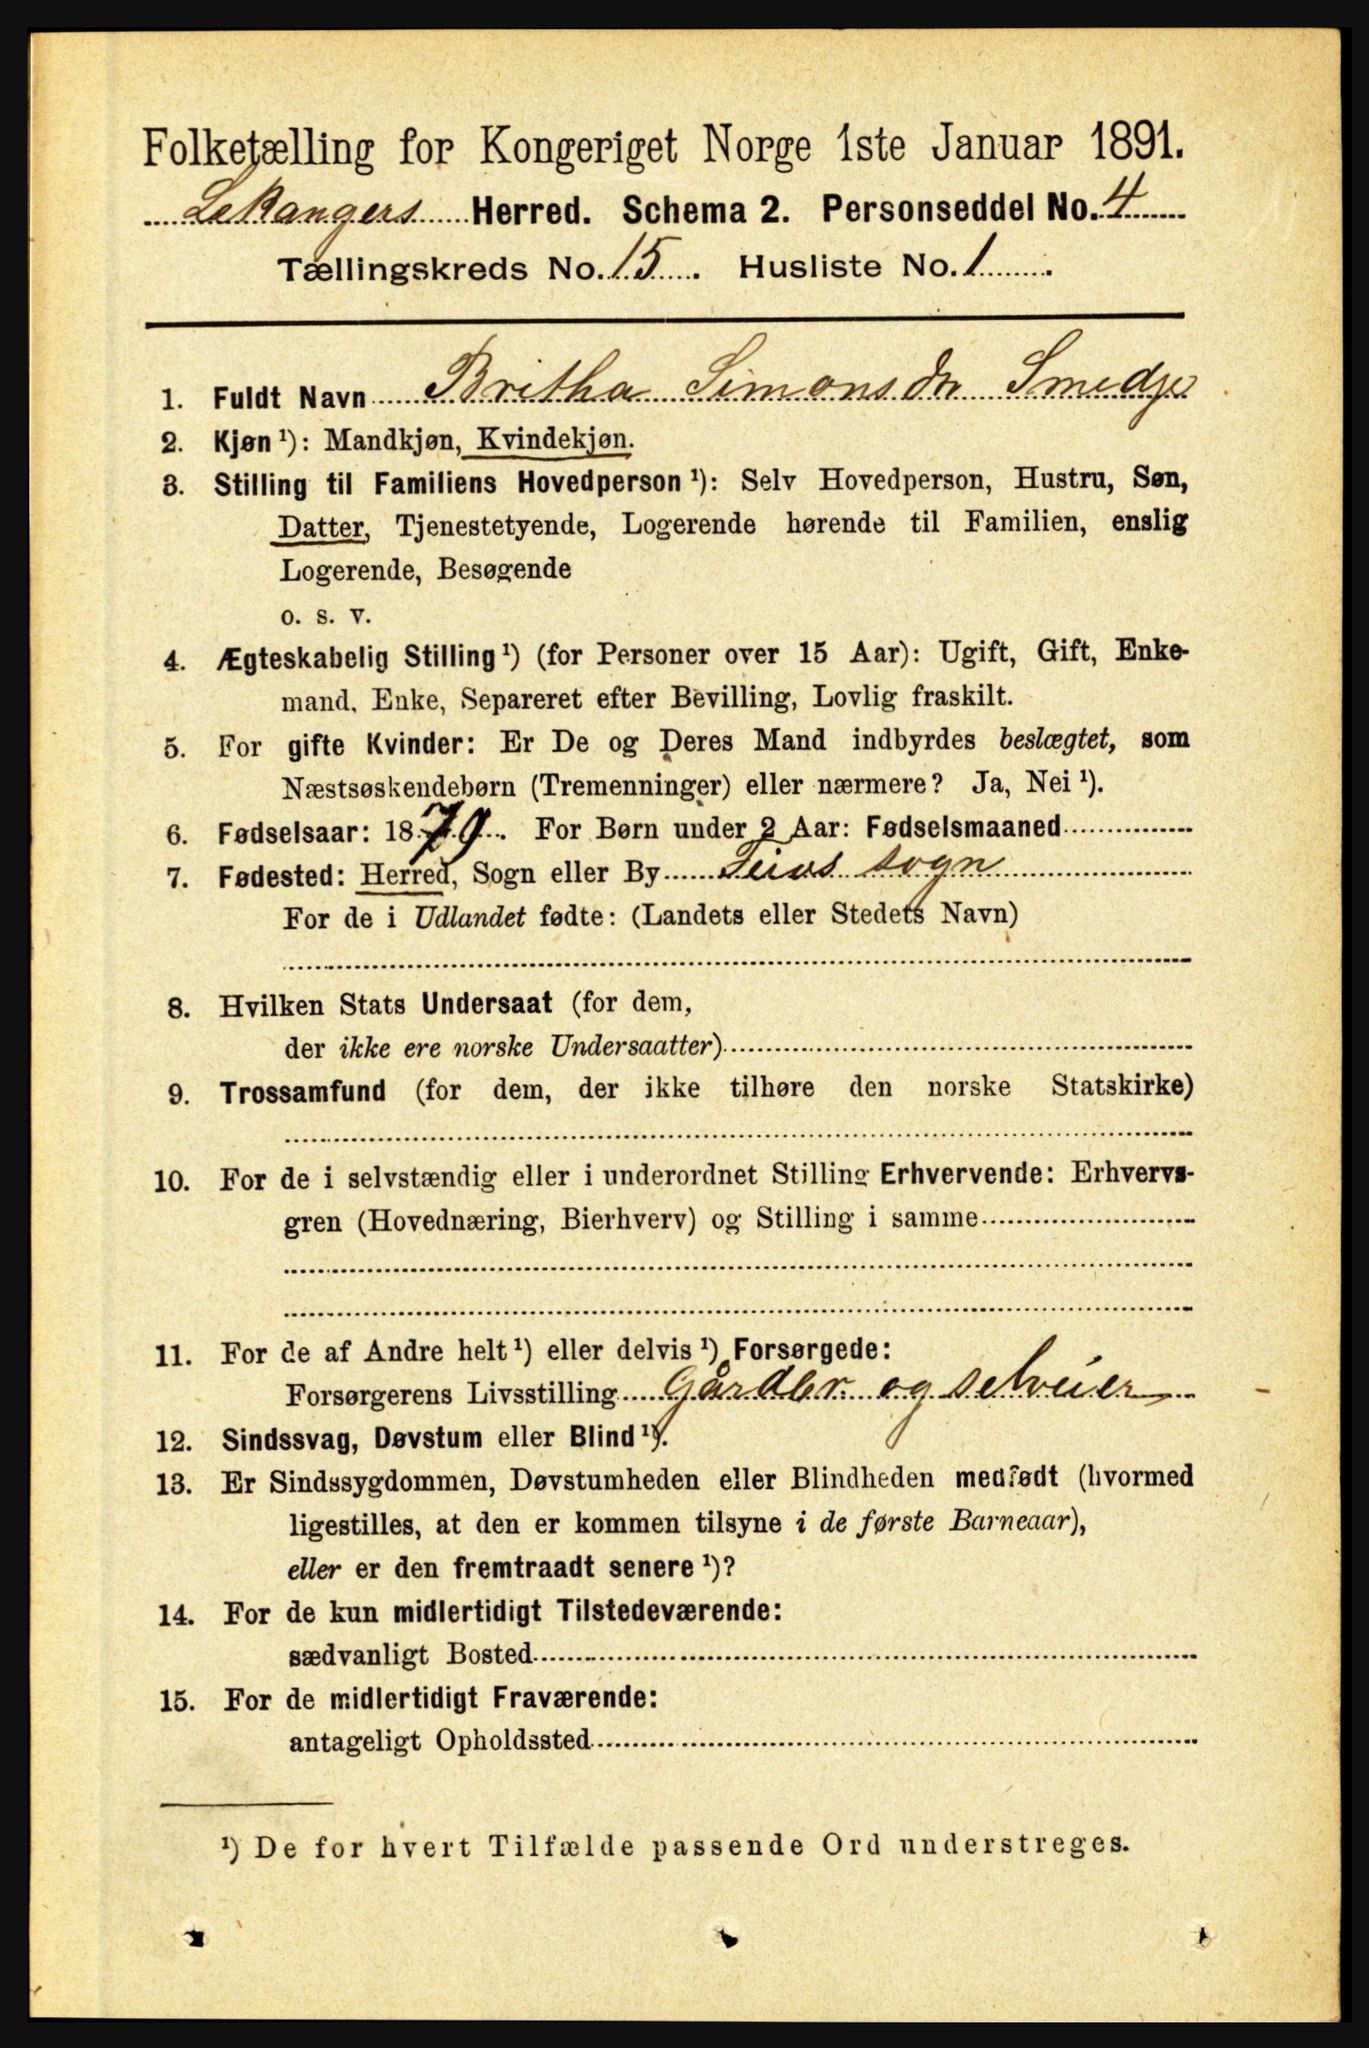 Folketælling for Kongeriget Norge 1ste Januar 1891.
Lekangers Herred. Schema 2. Personseddel No. 4
Tællingskreds No. 15. Husliste No. 1.
1. Fuldt Navn Britha Simonsdr Smedje
2. Kjøn ¹): Mandkjøn, Kvindekjøn.
3. Stilling til Familiens Hovedperson ¹): Selv Hovedperson, Hustru, Søn,
Datter, Tjenestetyende, Logerende hørende til Familien, enslig
Logerende, Besøgende
o. s. v.
4. Ægteskabelig Stilling ¹) (for Personer over 15 Aar): Ugift, Gift, Enke-
mand, Enke, Separeret efter Bevilling, Lovlig fraskilt.
5. For gifte Kvinder: Er De og Deres Mand indbyrdes beslægtet, som
Næstsøskendebørn (Tremenninger) eller nærmere? Ja, Nei ¹).
6. Fødselsaar: 1879. For Børn under 2 Aar: Fødselsmaaned
7. Fødested: Herred, Sogn eller By sogn
For de i Udlandet fødte: (Landets eller Stedets Navn)
8. Hvilken Stats Undersaat (for dem,
der ikke ere norske Undersaatter)
9. Trossamfund (for dem, der ikke tilhøre den norske Statskirke)
10. For de i selvstændig eller i underordnet Stilling Erhvervende: Erhvervs-
gren (Hovednæring, Bierhverv) og Stilling i samme
11. For de af Andre helt ¹) eller delvis ¹) Forsørgede:
Forsørgerens Livsstilling Gårdbr. og selveier
12. Sindssvag, Døvstum eller Blind ¹).
13. Er Sindssygdommen, Døvstumheden eller Blindheden medfødt (hvormed
ligestilles, at den er kommen tilsyne i de første Barneaar),
eller er den fremtraadt senere ¹)?
14. For de kun midlertidigt Tilstedeværende:
sædvanligt Bosted
15. For de midlertidigt Fraværende:
antageligt Opholdssted
¹) De for hvert Tilfælde passende Ord understreges.